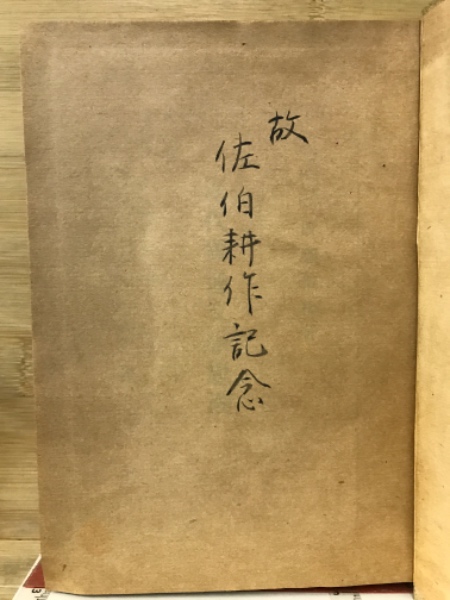 故
佐伯耕作記念